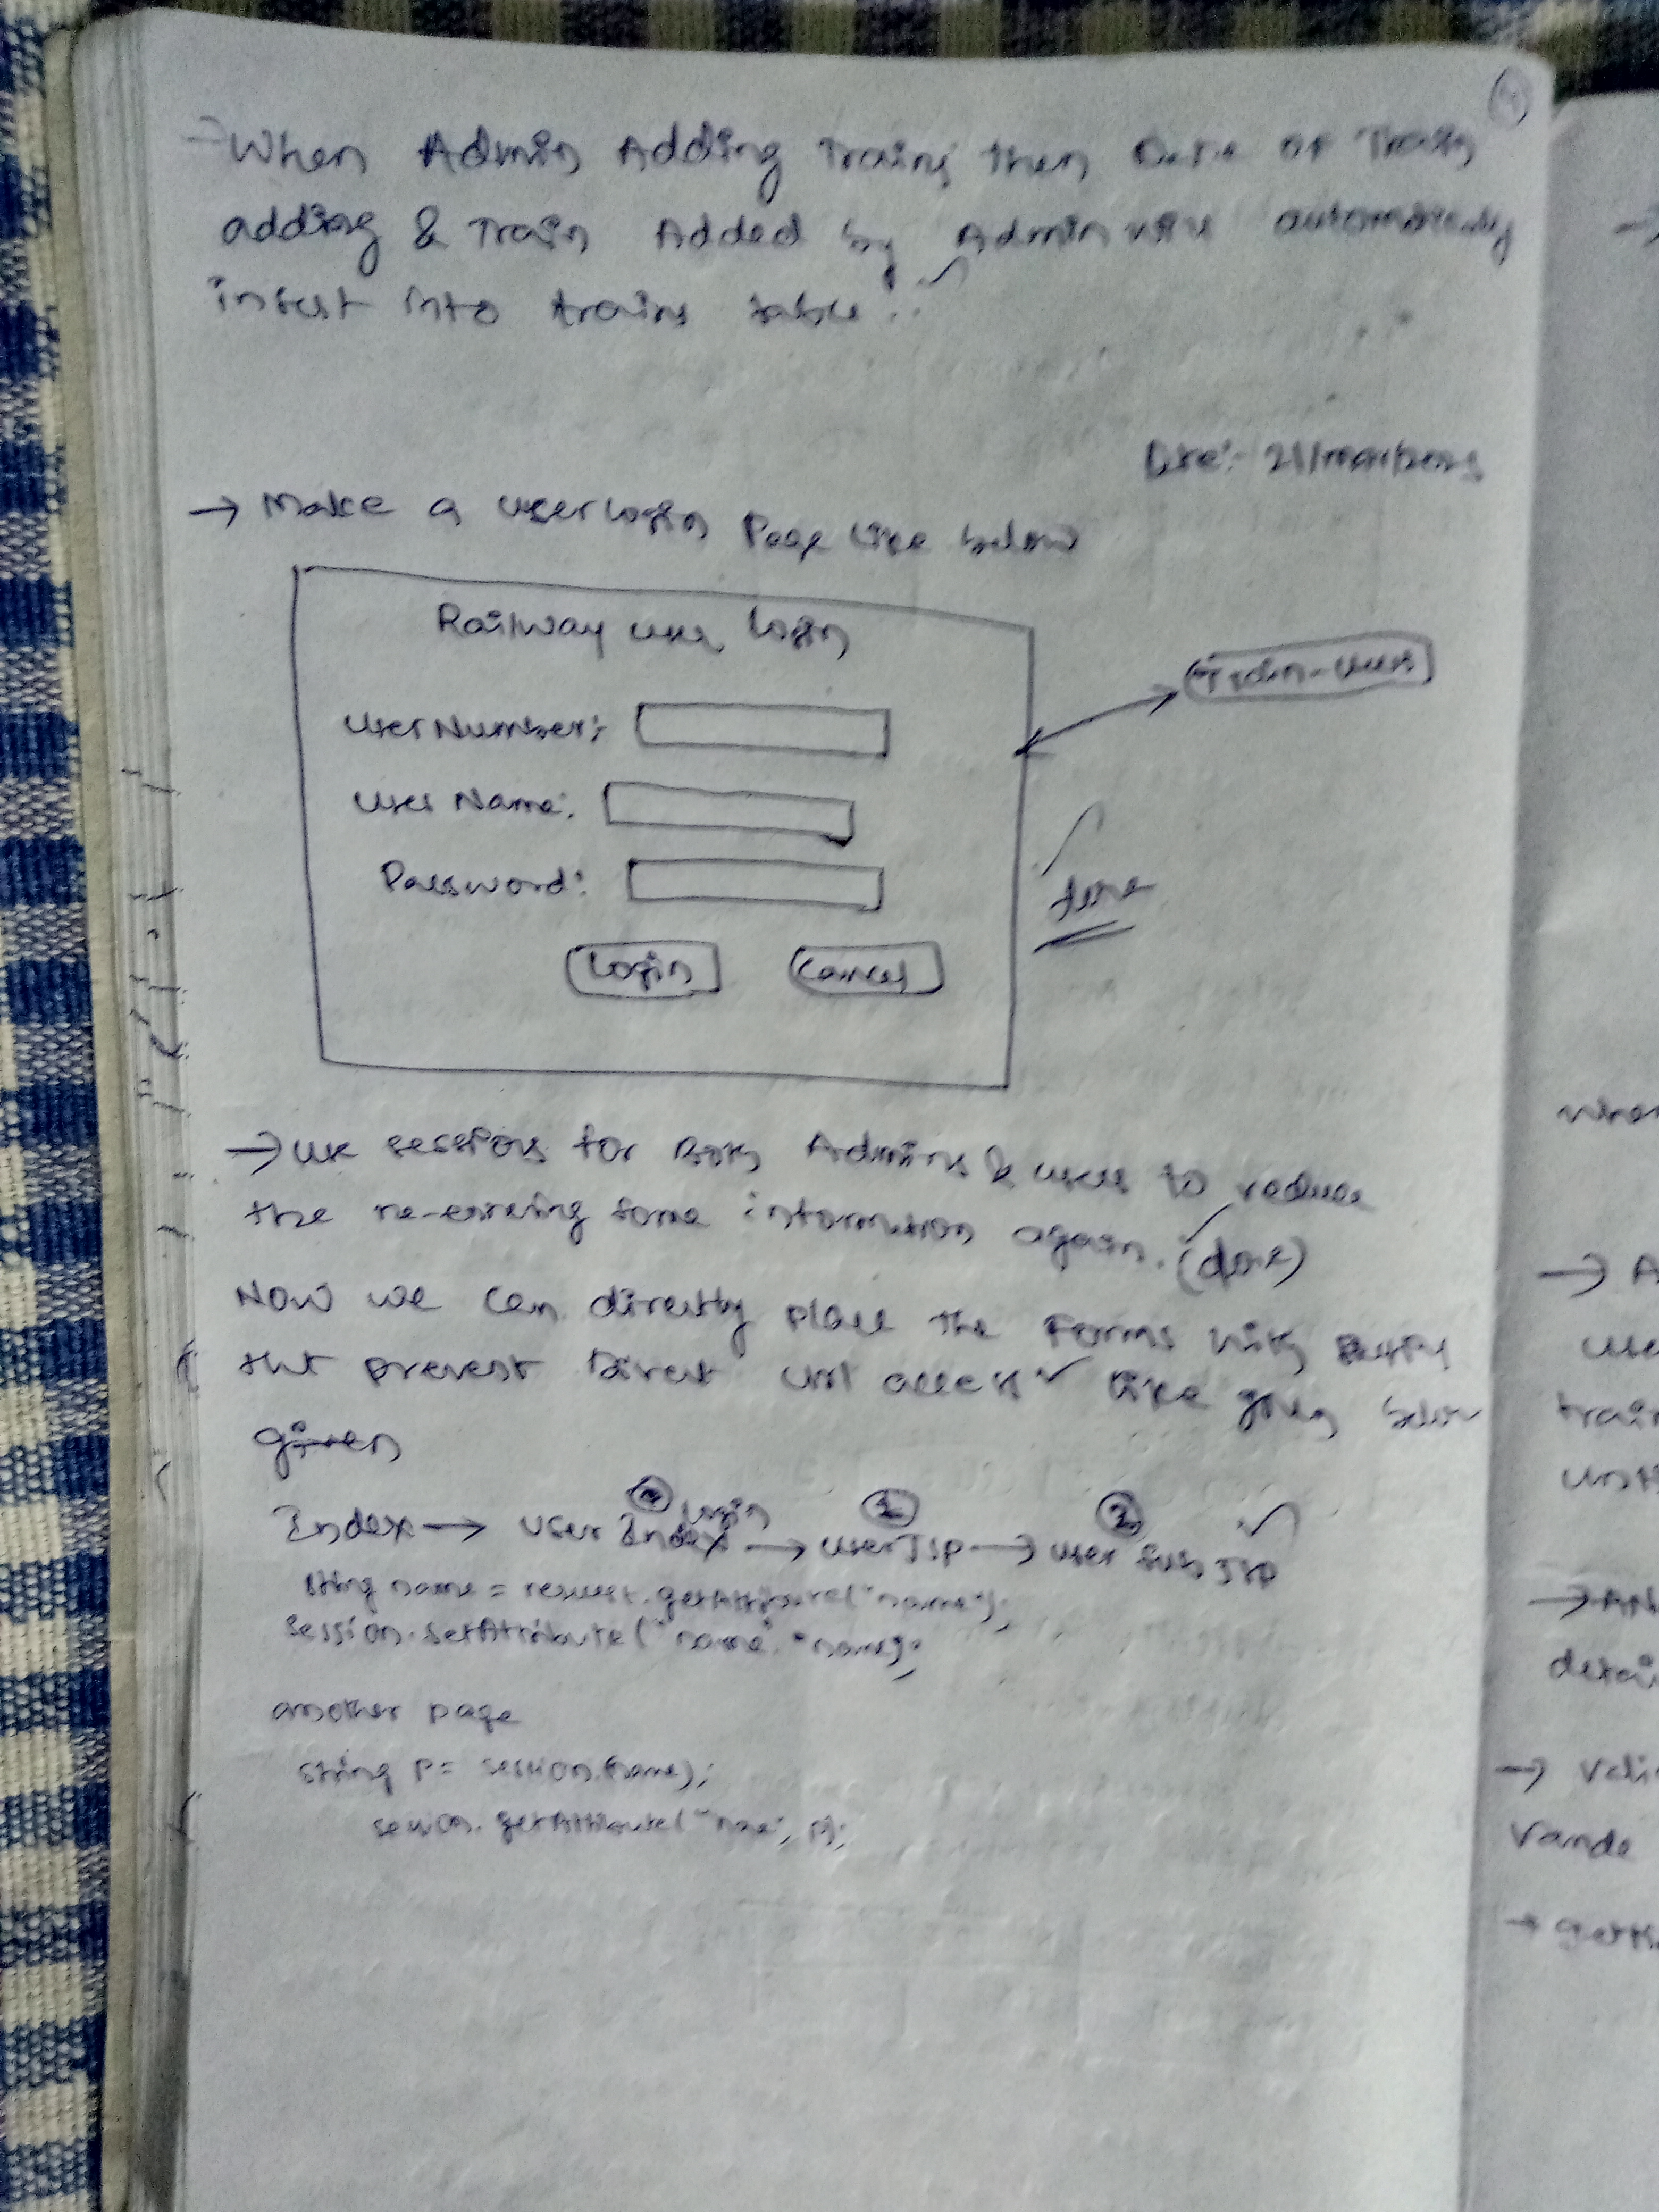 → When Admin Adding Trains then Date of Train
adding & Train Added by Admin will automatically
insert into trains table!.
Date:- 21/mar/
→ Make a userlogin Page like below
Railway user Login
User Number:
User Name:
Password:
Login Cancel
done
→ use sessions for Both Admins & users to reduce
the re-entering some information again. (done)
Now we can directly place the Forms
that prevent Direct url access like given below
given
Index → user Index Login → userJsp → user sub Jsp
String name = request.getAttribute("name");
session.setAttribute("name", "name);
another page
string p = session.(name);
session.getAttribute("name", p);
→
→ A
use
train
→ AN
detai
→ Vali
Vande
→ gett